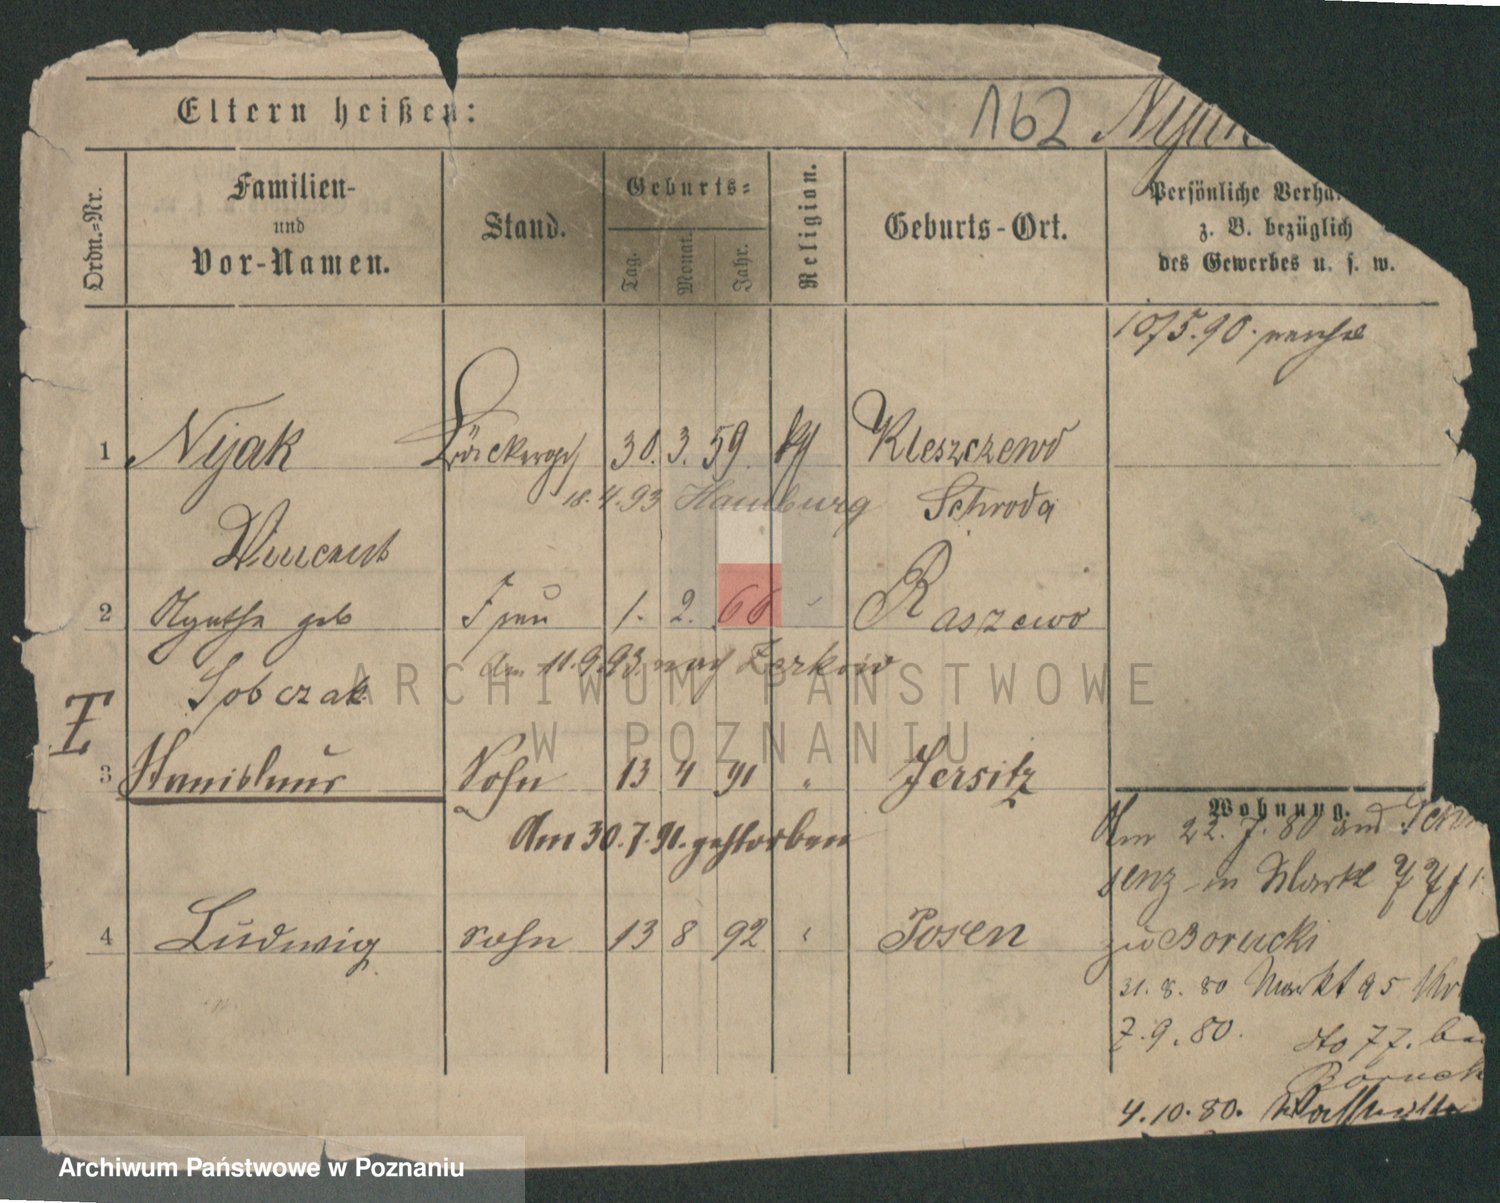 Eltern heißen:
162 Nijak
Ordn.=Nr.
Familien-
und
Vor-Namen.
Stand.
Geburts=
Tag.
Monat.
Jahr.
Religion.
Geburts-Ort.
Persönliche Verhä
z. B. bezüglich
des Gewerbes u. s. w.
1075.90.
1 Nijak 30. 3. 59. Kleszczewo
18.4.93 Hamburg Schroda
Vincent
2 Agathe geb Frau 1. 2. 66 Raszewo
Am 11.9.93. nach Zerkow
Sobczak
3 Stanislaus Sohn 13 4 91 " Jersitz
Am 30.7.91. gestorben
Wohnung.
Am 22. 7. 80
in Markt 77
4 Ludwig Sohn 13 8 92 " Posen
zu Borucki
31. 8. 80 Markt 95
7. 9. 80. dto 77. b
Boruck
4. 10. 80.
ARCHIWUM PAŃSTWOWE
W POZNANIU
Archiwum Państwowe w Poznaniu